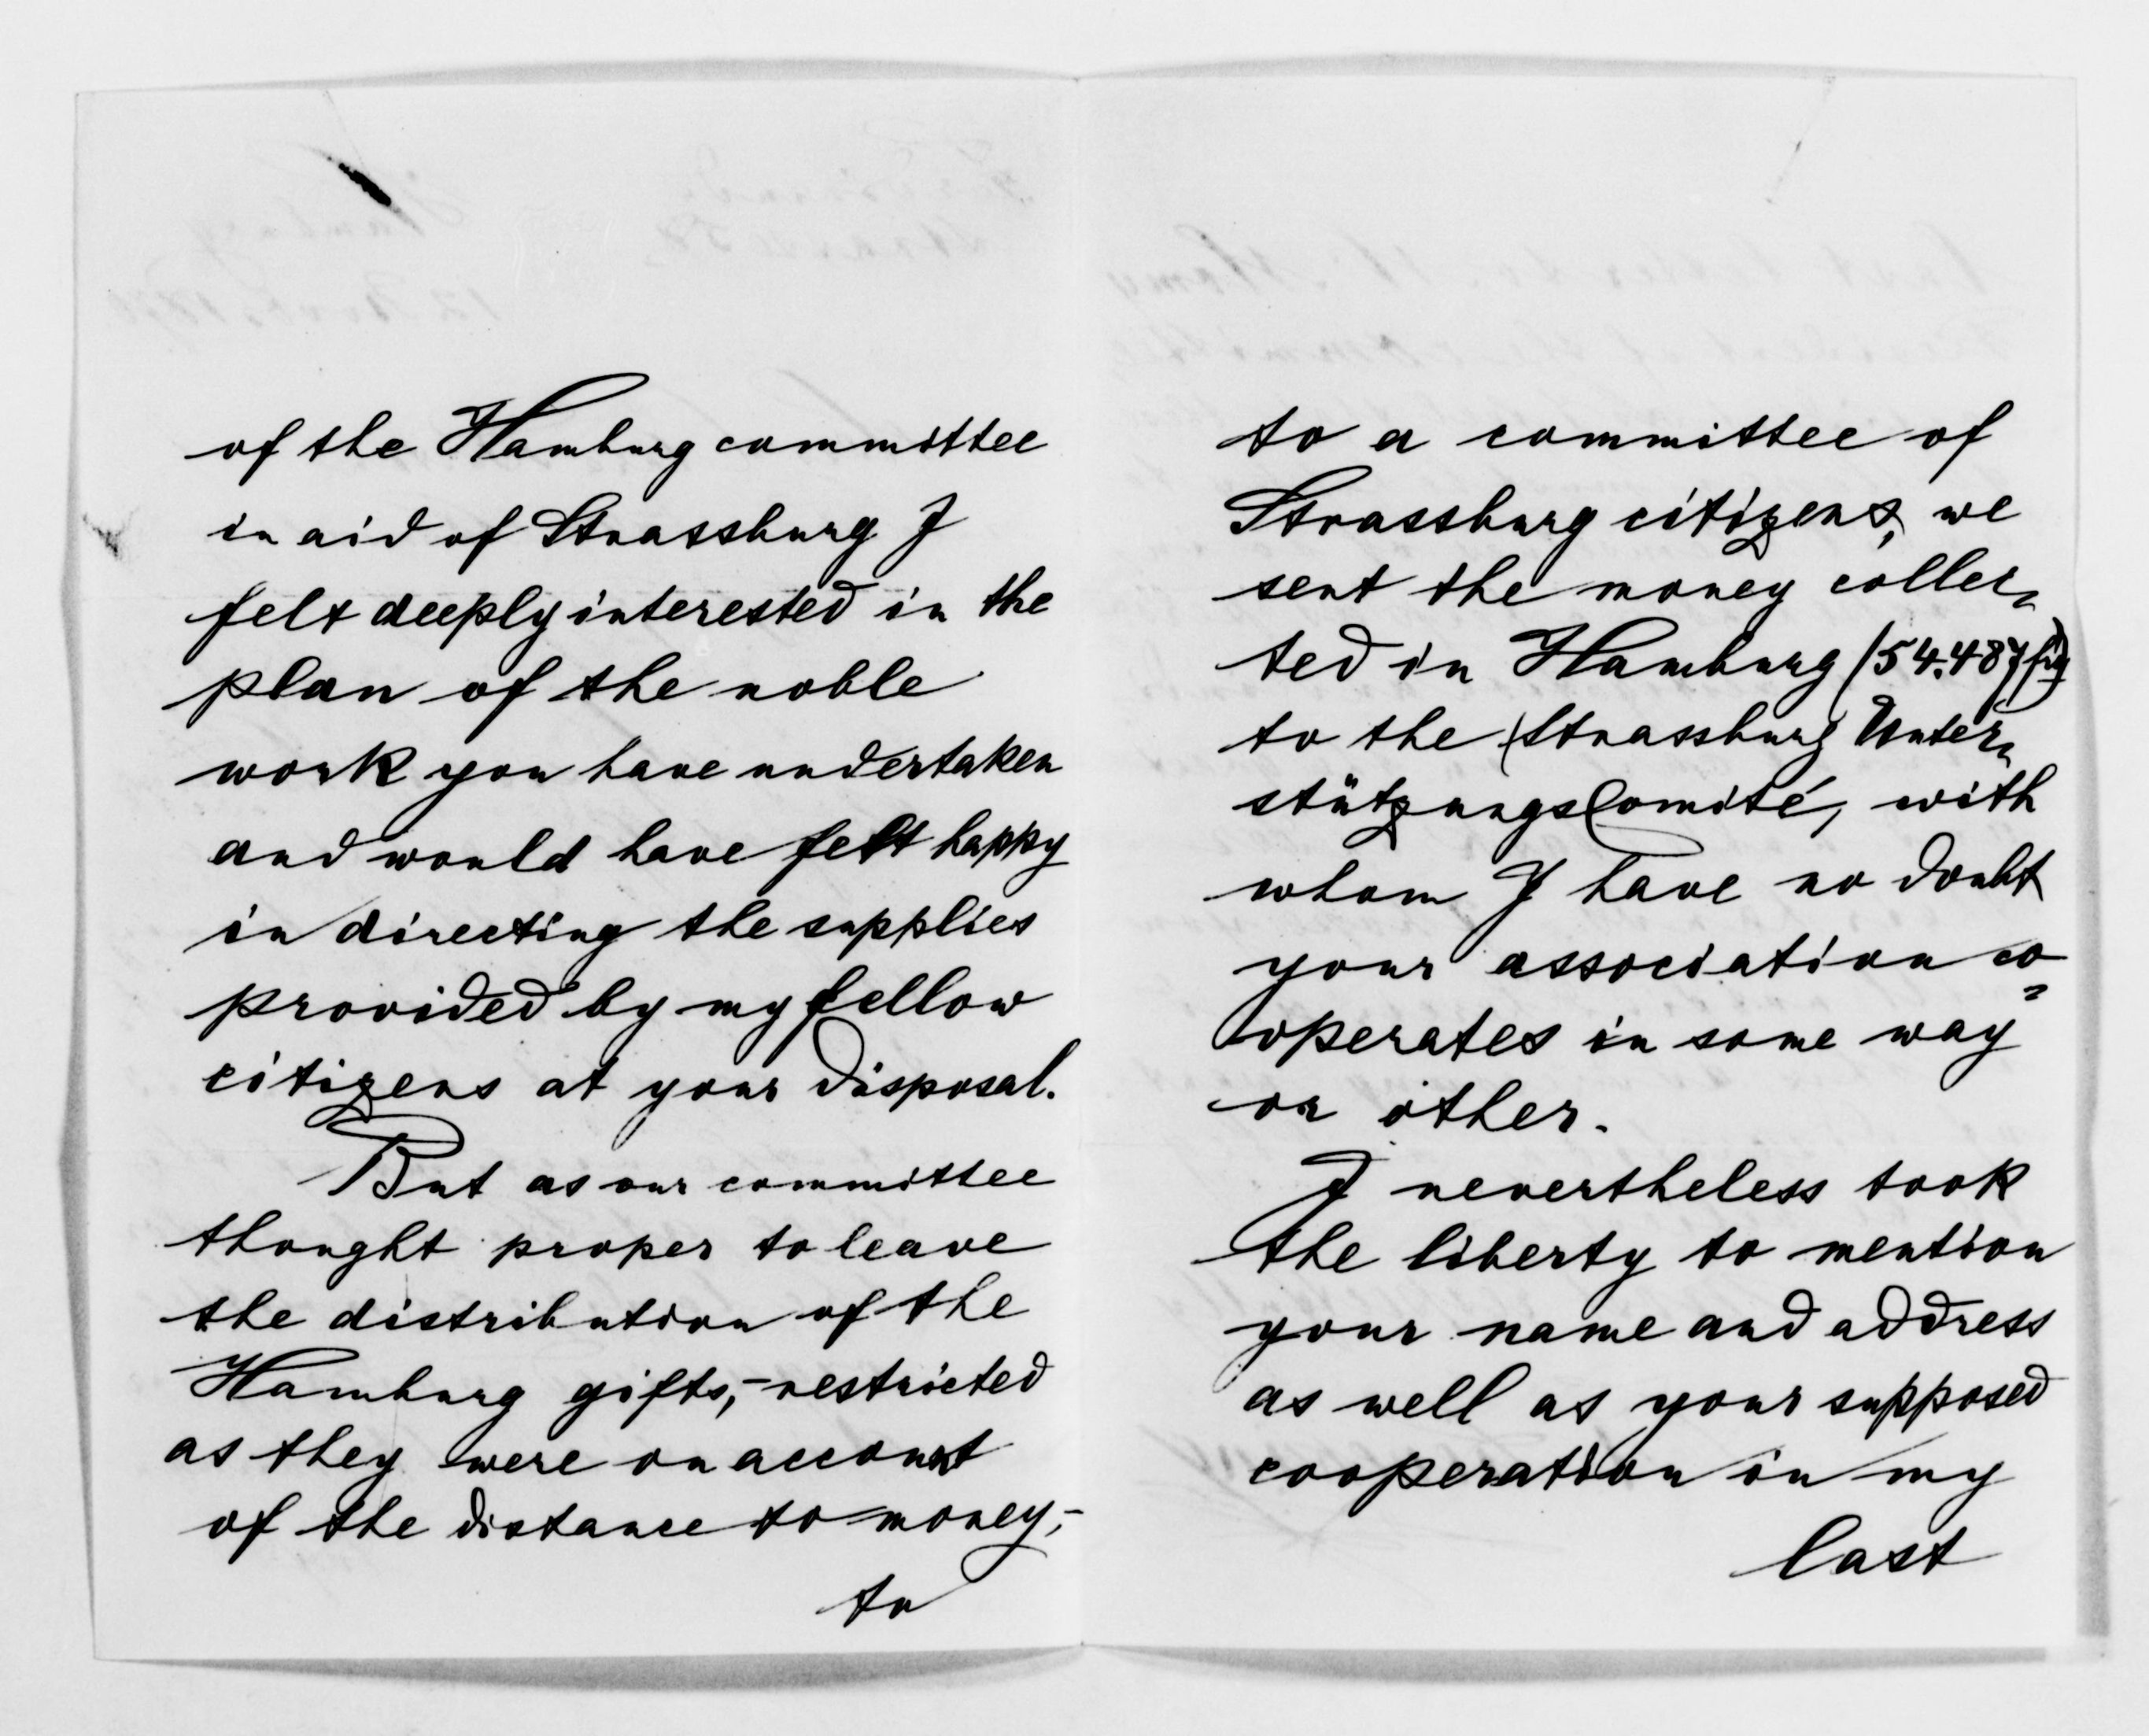 of the Hamburg committee
in aid of Strassburg I
felt deeply interested in the
plan of the noble
work you have undertaken
and would have felt happy
in directing the supplies
provided by my fellow
citizens at your disposal.
But as our committee
thought proper to leave
the distribution of the
Hamburg gifts,- restricted
as they were on account
of the distance to money,-
to
to a committee of
Strassburg citizens, we
sent the money collec-
ted in Hamburg (54.487
to the Strassburg Unter-
stützungsComité, with
whom I have no doubt
your association co-
operates in some way
or other.
I nevertheless took
the liberty to mention
your name and address
as well as your supposed
cooperation in my
last